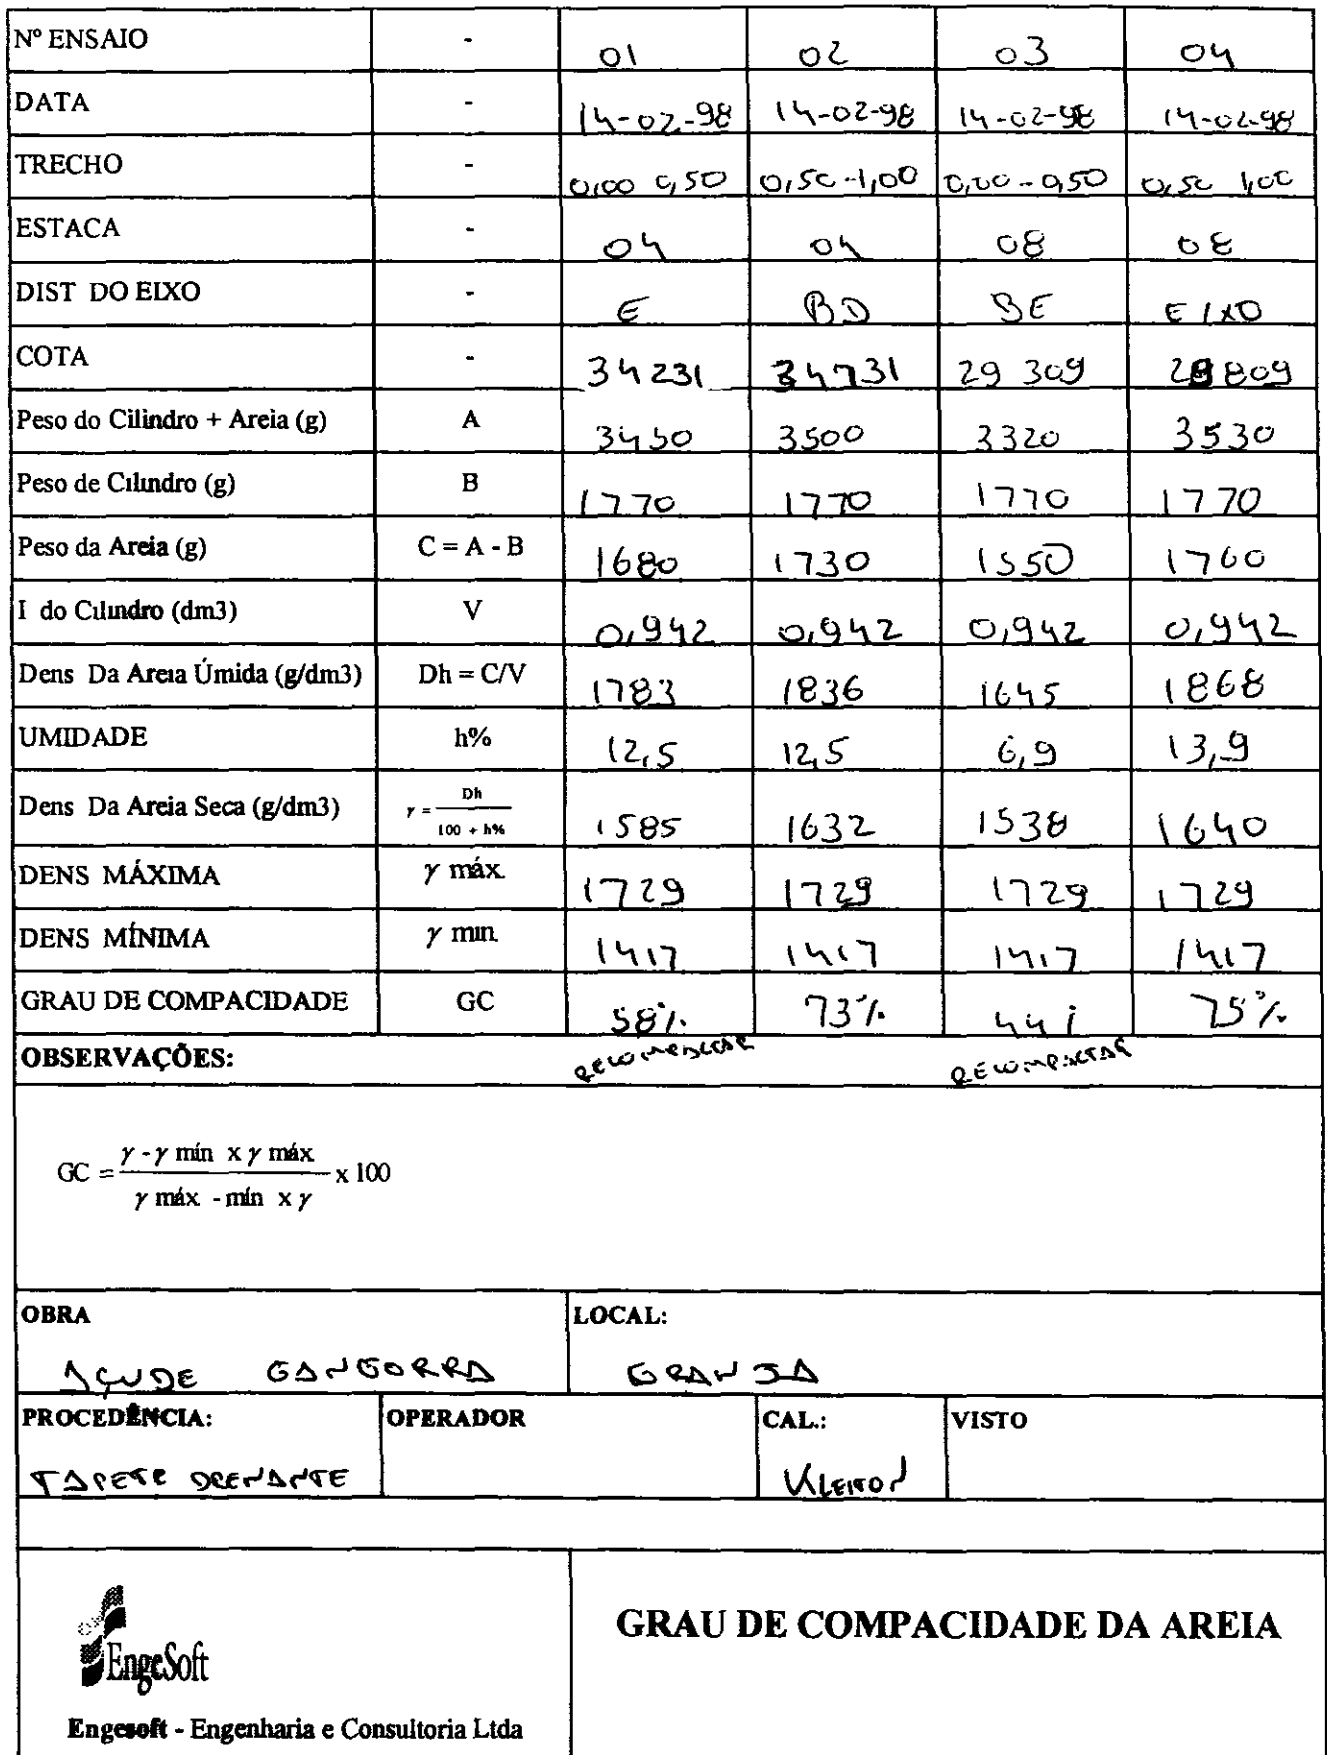 Nº ENSAIO - 01 02 03 04
DATA - 14-02-98 14-02-98 14-02-98 14-02-98
TRECHO - 0,00 0,50 0,50-1,00 0,00-0,50 0,50 1,00
ESTACA - 04 04 08 08
DIST DO EIXO - E BD BE EIXO
COTA - 34 231 34731 29 309 29809
Peso do Cilindro + Areia (g) A 3450 3500 3320 3530
Peso de Cilindro (g) B 1770 1770 1770 1770
Peso da Areia (g) C = A - B 1680 1730 1550 1760
I do Cilindro (dm3) V 0,942 0,942 0,942 0,942
Dens Da Areia Úmida (g/dm3) Dh = C/V 1783 1836 1645 1868
UMIDADE h% 12,5 12,5 6,9 13,9
Dens Da Areia Seca (g/dm3) γ = Dh / 100 + h% 1585 1632 1538 1640
DENS MÁXIMA γ máx. 1729 1729 1729 1729
DENS MÍNIMA γ min. 1417 1417 1417 1417
GRAU DE COMPACIDADE GC 58% 73% 44% 75%
OBSERVAÇÕES: RECOMPACTAR RECOMPACTAR
GC = γ - γ mín x γ máx / γ máx - mín x γ x 100
OBRA LOCAL:
AÇUDE GANGORRA GRANJA
PROCEDÊNCIA: OPERADOR CAL.: VISTO
TAPETE DRENANTE KLEITON
EngeSoft
GRAU DE COMPACIDADE DA AREIA
Engesoft - Engenharia e Consultoria Ltda